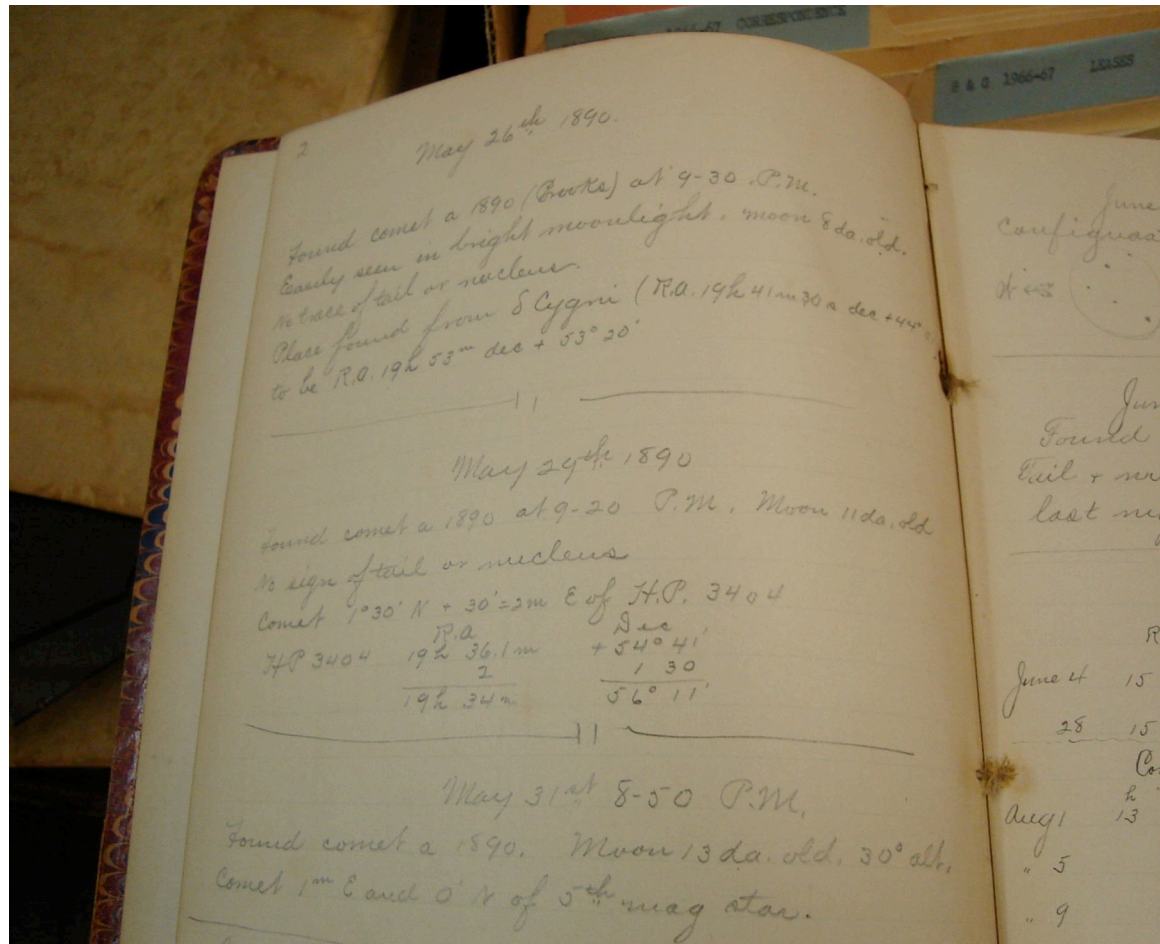 1966-67 CORRESPONDENCE
B & G 1966-67 LEASES
2
May 26th 1890.
Found comet a 1890 (Brooks) at 9-30 P.M.
Easily seen in bright moonlight. moon 8 da. old.
No trace of tail or nucleus.
Place found from δ Cygni (R.A. 19h 41m 30s dec +44°
to be R.A. 19h 53m dec + 53° 20'
May 29th 1890
Found comet a 1890 at 9-20 P.M. Moon 11 da. old
No sign of tail or nucleus
Comet 1°30' N + 30' = 2m E of H.P. 3404
R.A Dec
HP 3404 19h 36.1m +54° 41'
2 1 30
19h 34m 56° 11'
May 31st 8-50 P.M.
Found comet a 1890. Moon 13 da. old. 30° alt.
Comet 1m E and 0' N of 5th mag star.
June
Jun
Found
Tail +
last
R
June 4 15
28 15
Co
h
Aug 1 13
" 5
" 9